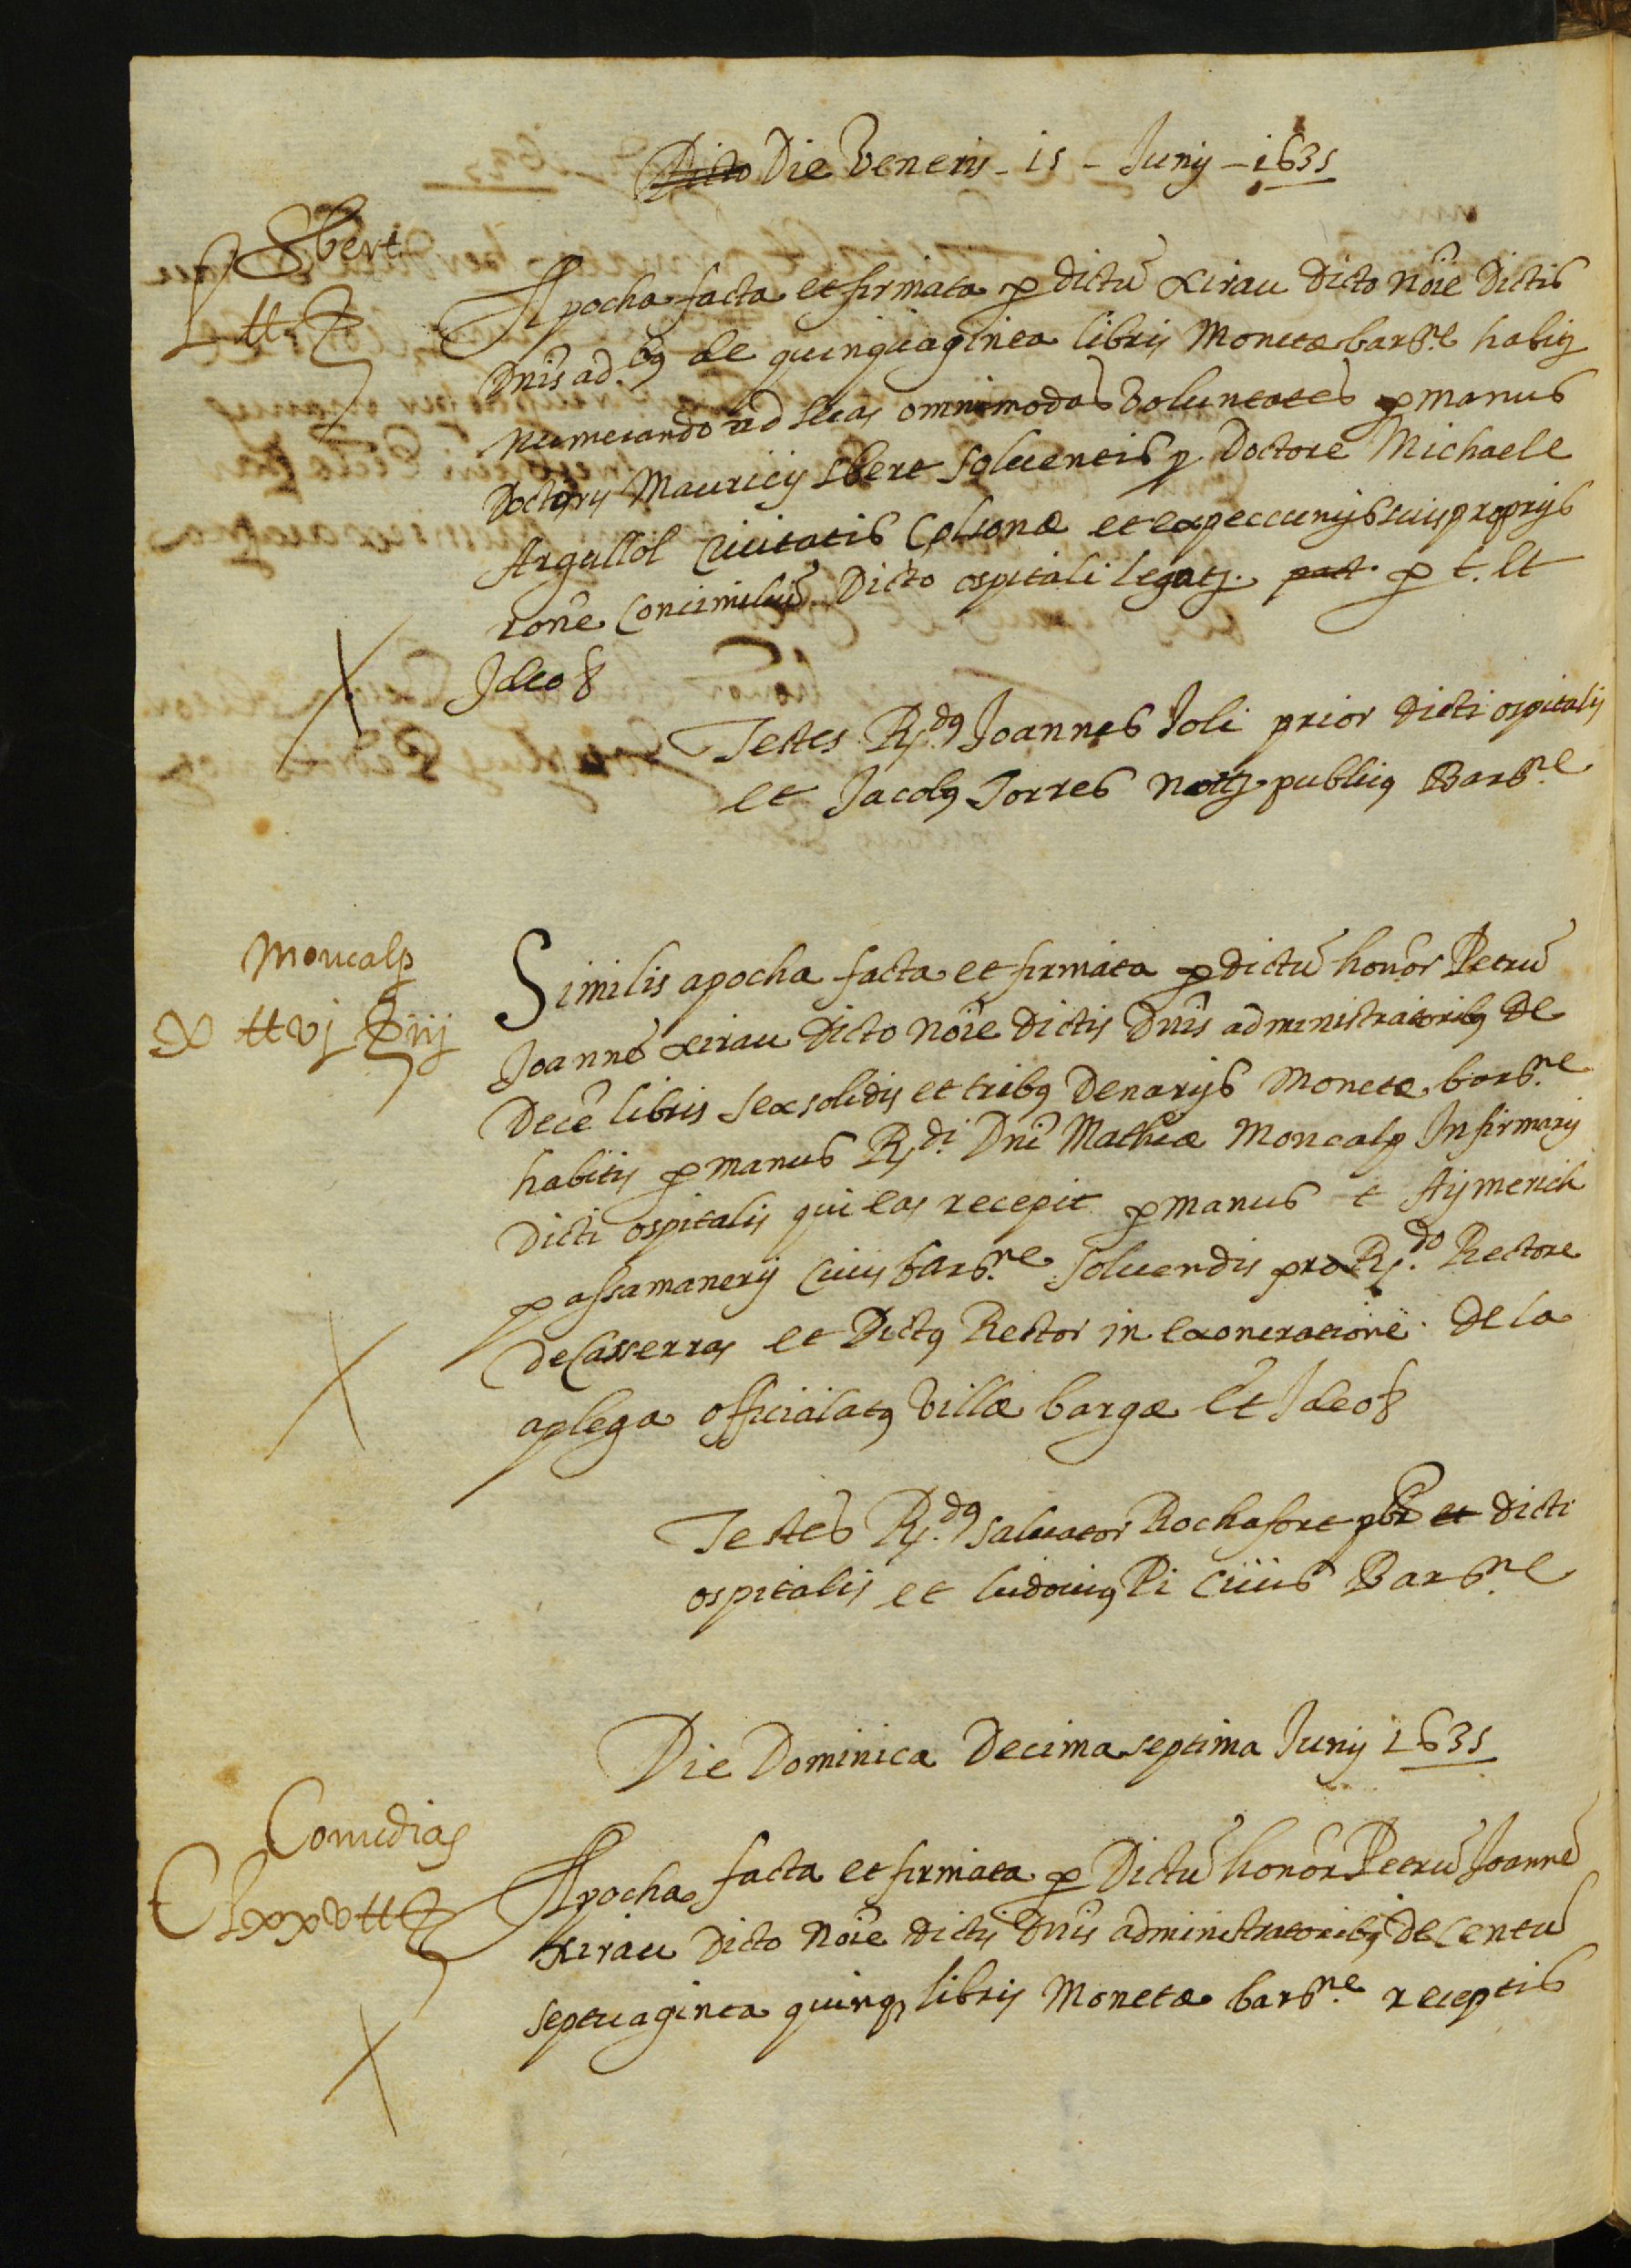 Dicto Die Veneris - 15 - Junij - 1635
Sbert
L ₶
Apocha facta et firmata p dictũ Xirau dicto nõie dictis
Dnis ad.bꝯ de quinquaginta libris Monetæ barne habitis
numerando ad suas omnimodas Voluntates p manus
Doctoris Mauricij Sbert solventis p. Doctore Michaele
Argullol Civitatis Celsonæ et ex peccunijs suis proprijs
rone Dicto ospitali legat. pat. p t. Et
Ideo &
Testes Rdꝯ Joannes Joli prior dicti ospitalis
et Jacobꝯ Torres notꝯ publicꝯ Barne
Moncalp
X ₶ vj iij
Similis apocha facta et firmata p dictũ honor Petrũ
Joannẽ Xirau Dicto nõie dictis Dnis administratoribꝯ de
Decẽ libris sex solidis et tribꝯ Denarijs Monetæ barne
habitis p manus Rdi Dni Mathiæ Moncalp Infirmarij
Dicti ospitalis qui eas recepit p manus t Aymerich
passamanerij civis barne solvendis pro Rdo Rectore
de Casserras et Dictꝯ Rector in exonerationẽ de la
aplega officialatꝯ Villæ bargæ Et Ideo &
Testes Rdꝯ Salvator Rochafort pbr et dicti
ospitalis et Ludovicꝯ Pi civis Barne
Die Dominica Decima septima Junij 1635
Comedias
CLxxv ₶
Apocha facta et firmata p Dictũ honor Petrũ Joannẽ
Xirau Dicto nõie dictis Dnis administratoribꝯ de Centũ
septuaginta quinqꝫ libris Monetæ barne receptis